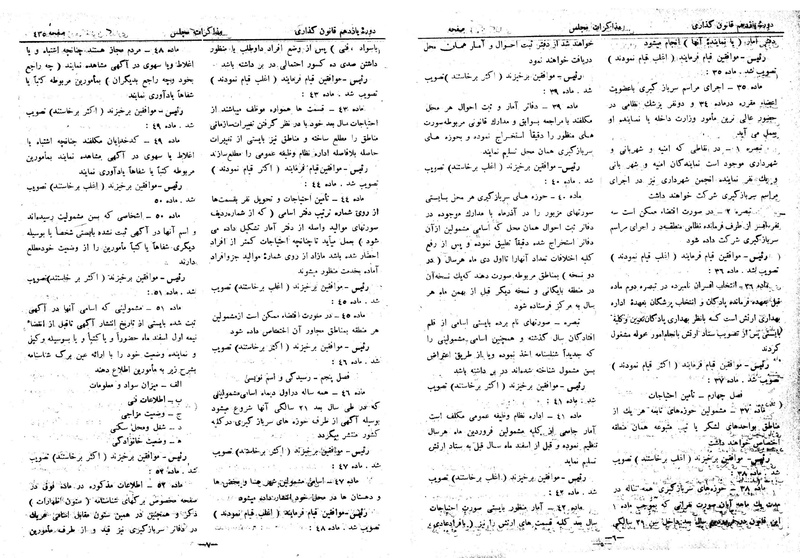 دوره یازدهم قانون گذاری
مذاکرات مجلس
صفحه
دفتر آمار ( یا نماینده آنها ) انجام میشود
رئیس - موافقین قیام فرمایند ( اغلب قیام نمودند )
تصویب شد ماده ۳۵
ماده ۳۵ - اجرای مراسم سربازگیری باعضویت
اعضاء مقرره درماده ۳۴ و دونفر پزشک نظامی در
حضور عالی ترین مأمور وزارت داخله یا نماینده او
بعمل می آید
تبصره ۱ - در نقاطی که امنیه و شهربانی و
شهرداری موجود است نمایندگان امنیه و شهر بانی
و یک نفر نماینده انجمن شهرداری نیز در اجرای
مراسم سربازگیری شرکت خواهند داشت
تبصره ۲ - در صورت اقتضاء ممکن است سه
نفرافسر از طرف فرمانده نظامی منطقه در اجرای مراسم
سربازگیری شرکت داده شود
رئیس - موافقین قیام فرمایند ( اغلب قیام نمودند )
تصویب شد . ماده ۳۶ :
ماده ۳۶ - انتخاب افسران نامبرده در تبصره دوم ماده
قبل بعهده فرمانده پادگان و انتخاب پزشکان بعهده اداره
بهداری ارتش است که بنظر بهداری پادگان تعیین وکلیه
بایستی پس از تصویب ستاد ارتش بانجام امور محوله مشغول
گردند
رئیس - موافقین قیام فرمایند ( اغلب قیام نمودند )
تصویب شد . ماده ۳۷ :
فصل چهارم - تأمین احتیاجات
ماده ۳۷ - مشمولین حوزه های تابعه هر یک از
مناطق بواحدهای لشگر یا تیپ متبوعه همان منطقه
اختصاص خواهند داشت
رئیس - موافقین برخیزند ( اغلب برخاستند ) تصویب
شد . ماده ۳۸ :
ماده ۳۸ - حوزه های سربازگیری همه ساله در
مدت یک ماهه آبان صورت نفراتی که بموجب ماده ۱
این قانون در سال بعد داخل سن ۲۱ سالگی
خواهند شد از دفتر ثبت احوال و آمار همان محل
دریافت خواهند نمود
رئیس - موافقین برخیزند ( اکثر برخاستند ) تصویب
شد . ماده ۳۹ :
ماده ۳۹ - دفاتر آمار و ثبت احوال هر محل
مکلفند با مراجعه بسوابق و مدارک قانونی مربوطه صورت
های منظور را دقیقاً استخراج نموده و بحوزه های
سربازگیری همان محل تسلیم نمایند
رئیس - موافقین قیام فرمایند ( اکثر قیام نمودند )
تصویب شد . ماده ۴۰ :
ماده ۴۰ - حوزه های سربازگیری هر محل بایستی
صورتهای مزبور را در آذرماه با مدارک موجوده در
دفاتر ثبت احوال همان محل که اسامی مشمولین ازآن
دفاتر استخراج شده دقیقاً تطبیق نموده و پس از رفع
کلیه اختلافات تعداد آنها را تا اول دی ماه هرسال ( در
دو نسخه ) بمناطق مربوطه صورت دهند که یک نسخه آن
در منطقه بایگانی و نسخه دیگر قبل از بهمن ماه هر
سال به مرکز فرستاده شود
تبصره - صورتهای نام برده بایستی اسامی از قلم
افتادگان سال گذشته و همچنین اسامی مشمولینی را
که جدیداً شناسنامه اخذ نموده ویا از طریق اعتراض
بسن مشمول شناخته شده اند در بر داشته باشد
رئیس - موافقین برخیزند ( اغلب برخاستند ) تصویب
شد . ماده ۴۱ :
ماده ۴۱ - اداره نظام وظیفه عمومی مکلف است
آمار جامعی از کلیه مشمولین فروردین ماه هرسال
تنظیم نموده و قبل از اسفند ماه سال قبل به ستاد ارتش
تسلیم نماید
رئیس - موافقین برخیزند ( اکثر برخاستند ) تصویب
شد . ماده ۴۲ :
ماده ۴۲ - آمار منظور بایستی صورت احتیاجات
سال بعد کلیه قسمت های ارتش را نیز ( با افراد عادی ،
-۶-
دوره یازدهم قانون گذاری
مذاکرات مجلس
صفحه ۴۳۵
باسواد ، فنی ) پس از وضع افراد داوطلب یا منظور
داشتن صدی ده کسور احتمالی در بر داشته باشد
رئیس - موافقین قیام فرمایند ( اغلب قیام نمودند )
تصویب شد . ماده ۴۳ :
ماده ۴۳ - قسمت ها همواره موظف میباشند از
احتیاجات سال بعد خود با در نظر گرفتن تغییرات سازمانی
مناطق را مطلع ساخته و مناطق نیز بایستی از تغییرات
حاصل بلافاصله اداره نظام وظیفه عمومی را مطلع سازند
رئیس - موافقین قیام فرمایند ( اکثر قیام نمودند )
تصویب شد . ماده ۴۴ :
ماده ۴۴ - تأمین احتیاجات و تحویل نفر بقسمت ها
از روی شماره ترتیب دفتر اسامی ( که از شماره ردیف
صورتهای موالید واصله از دفاتر آمار تشکیل داده می
شود ) بعمل میآید تا چنانچه احتیاجات کمتر از افراد
احضار شده باشد مازاد از روی شماره موالید جزو افراد
آماده بخدمت منظور میشوند
رئیس - موافقین برخیزند ( اغلب برخاستند ) تصویب
شد . ماده ۴۵ :
ماده ۴۵ - در صورت اقتضاء ممکن است ازمشمولین
هر منطقه بمناطق مجاور آن اختصاص داده شود
رئیس - موافقین برخیزند ( اکثر برخاستند ) تصویب
شد . ماده ۴۶ :
فصل پنجم - رسیدگی و اسم نویسی
ماده ۴۶ - همه ساله دراول دیماه اسامی مشمولینی
که در طی سال بعد ۲۱ سالگی آنها شروع میشود
بوسیله آگهی از طرف حوزه های سربازگیری درکلیه
کشور منتشر میگردد
رئیس - موافقین برخیزند ( اکثر برخاستند ) تصویب
شد . ماده ۴۷ :
ماده ۴۷ - اسامی مشمولین شهر ها و بخش ها
و دهستان ها در محل خود انتشار داده میشود
رئیس - موافقین قیام فرمایند ( اکثر قیام نمودند )
تصویب شد . ماده ۴۸ :
ماده ۴۸ - مردم مجاز هستند چنانچه اشتباه و یا
اغلاط ویا سهوی در آگهی مشاهده نمایند ( چه راجع
بخود وچه راجع بدیگران ) بمأمورین مربوطه کتباً یا
شفاهاً یادآوری نمایند
رئیس - موافقین برخیزند ( اکثر برخاستند ) تصویب
شد . ماده ۴۹ :
ماده ۴۹ - کدخدایان مکلفند چنانچه اشتباه یا
اغلاط یا سهوی در آگهی مشاهده نمایند بمأمورین
مربوطه کتباً یا شفاهاً یادآوری نمایند
رئیس - موافقین برخیزند ( اغلب برخاستند ) تصویب
شد . ماده ۵۰
ماده ۵۰ - اشخاصی که بسن مشمولیت رسیده اند
و اسم آنها در آگهی ثبت نشده بایستی شخصاً یا بوسیله
دیگری شفاهاً یا کتباً مأمورین را از وضعیت خودمطلع
دارند
رئیس - موافقین برخیزند ( اکثر بر خاستند) تصویب
شد . ماده ۵۱ :
ماده ۵۱ - مشمولینی که اسامی آنها در آگهی
ثبت شده بایستی از تاریخ انتشار آگهی تا قبل از انقضاء
نیمه اول اسفند ماه حضوراً و یا کتباً و یا بوسیله وکیل
و نماینده وضعیت خود را با ارائه عین برگ شناسنامه
بشرح زیر به مأمورین اطلاع دهند
الف - میزان سواد و معلومات
ب - اطلاعات فنی
ج - وضعیت مزاجی
د - شغل ومحل سکنی
ه - وضعیت خانوادگی
رئیس - موافقین برخیزند ( اکثر برخاستند ) تصویب
شد . ماده ۵۲ :
ماده ۵۲ - اطلاعات مذکوره در ماده فوق در
صفحه مخصوص برگهای شناسنامه ( ستون اظهارات )
ذکر و همچنین در همین ستون مقابل اسامی هر یک
در دفاتر سربازگیری نیز قید و از طرف مأمورین
-۷-